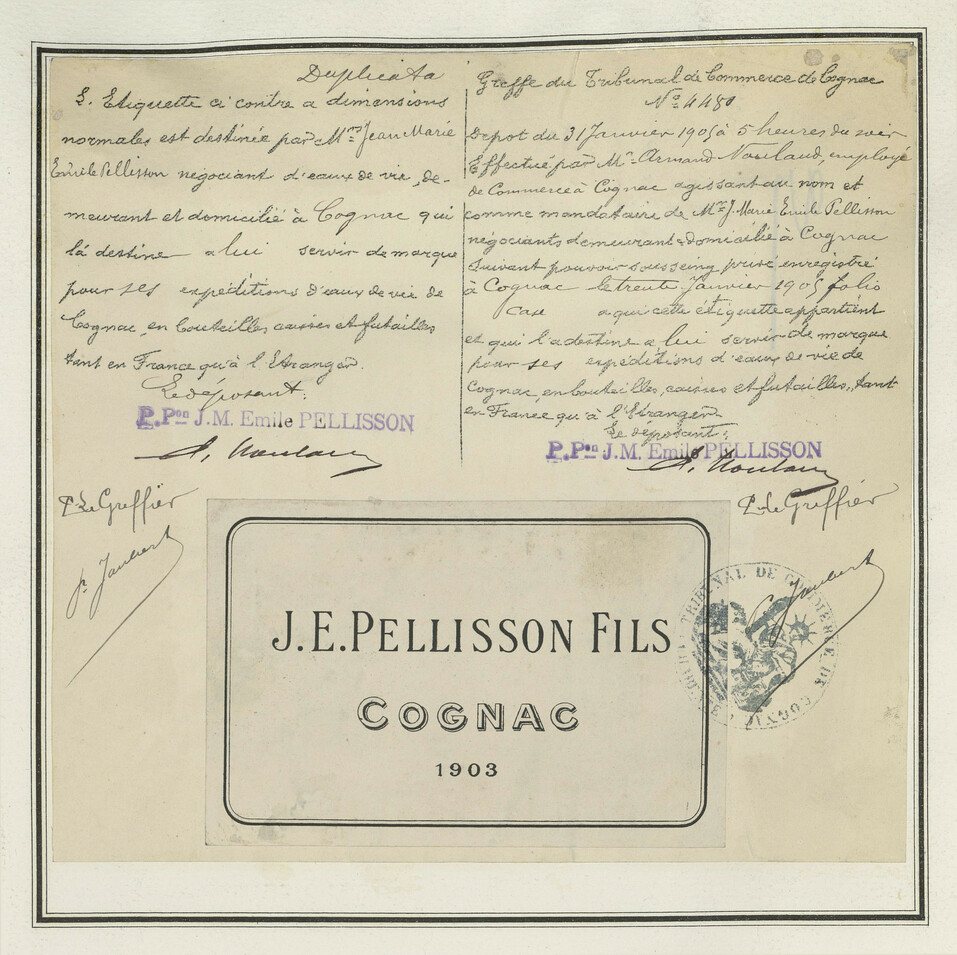 Duplicata
L'Etiquette ci contre a dimensions
normales est destinée par Mr Jean Marie
Emile Pellisson négociant d'eaux de vie, de-
meurant et domicilié à Cognac qui
la destine a lui servir de marque
pour ses expéditions d'eaux de vie de
Cognac en bouteilles, caisses et futailles
tant en France qu'à l'Etranger.
Le déposant:
P. Pon J.M. Emile PELLISSON
A. Noulaud
Pr Le Greffier
Greffe du Tribunal de Commerce de Cognac
No 4480
Depot du 31 Janvier 1905 à 5 heures du soir
Effectué par Mr Armand Noulaud, employé
de Commerce à Cognac agissant au nom et
comme mandataire de Mr J. Marie Emile Pellisson
négociants demeurant & domicilié à Cognac
suivant pouvoir sous seing privé enregistré
à Cognac le trente Janvier 1905 folio
Case a qui cette étiquette appartient
et qui l'a destine a lui servir de marque
pour ses expéditions d'eaux de vie de
Cognac, en bouteilles, caisses et futailles, tant
en France qu'à l'Etranger.
Le déposant:
P. Pon J.M. Emile PELLISSON
A. Noulaud
Pr Le Greffier
J.E. PELLISSON FILS
COGNAC
1903
TRIBUNAL DE COMMERCE DE COGNAC